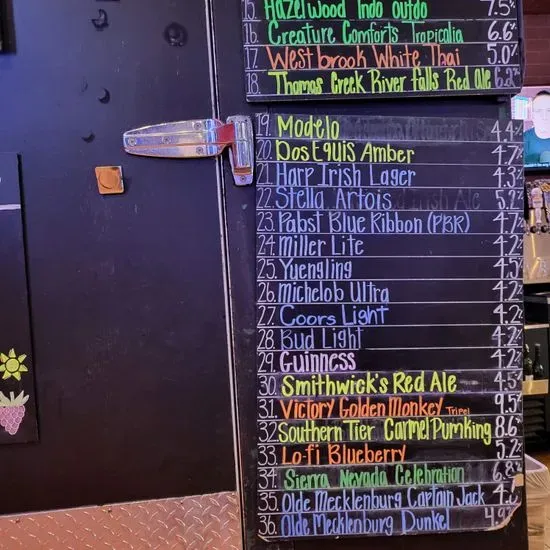 15. Hazelwood Indo outdo 7.5%
16. Creature Comforts Tropicalia 6.6%
17. Westbrook White Thai 5.0%
18. Thomas Creek River falls Red Ale 6.2%
19. Modelo 4.4%
20. Dos Equis Amber 4.7%
21. Harp Irish Lager 4.3%
22. Stella Artois 5.2%
23. Pabst Blue Ribbon (PBR) 4.7%
24. Miller Lite 4.2%
25. Yuengling 4.5%
26. Michelob Ultra 4.2%
27. Coors Light 4.2%
28. Bud Light 4.2%
29. Guinness 4.2%
30. Smithwick's Red Ale 4.5%
31. Victory Golden Monkey Tripel 9.5%
32. Southern Tier Carmel Pumking 8.6%
33. Lo-fi Blueberry 5.2%
34. Sierra Nevada Celebration 6.8%
35. Olde Mecklenburg Captain Jack
36. Olde Mecklenburg Dunkel 4.9%